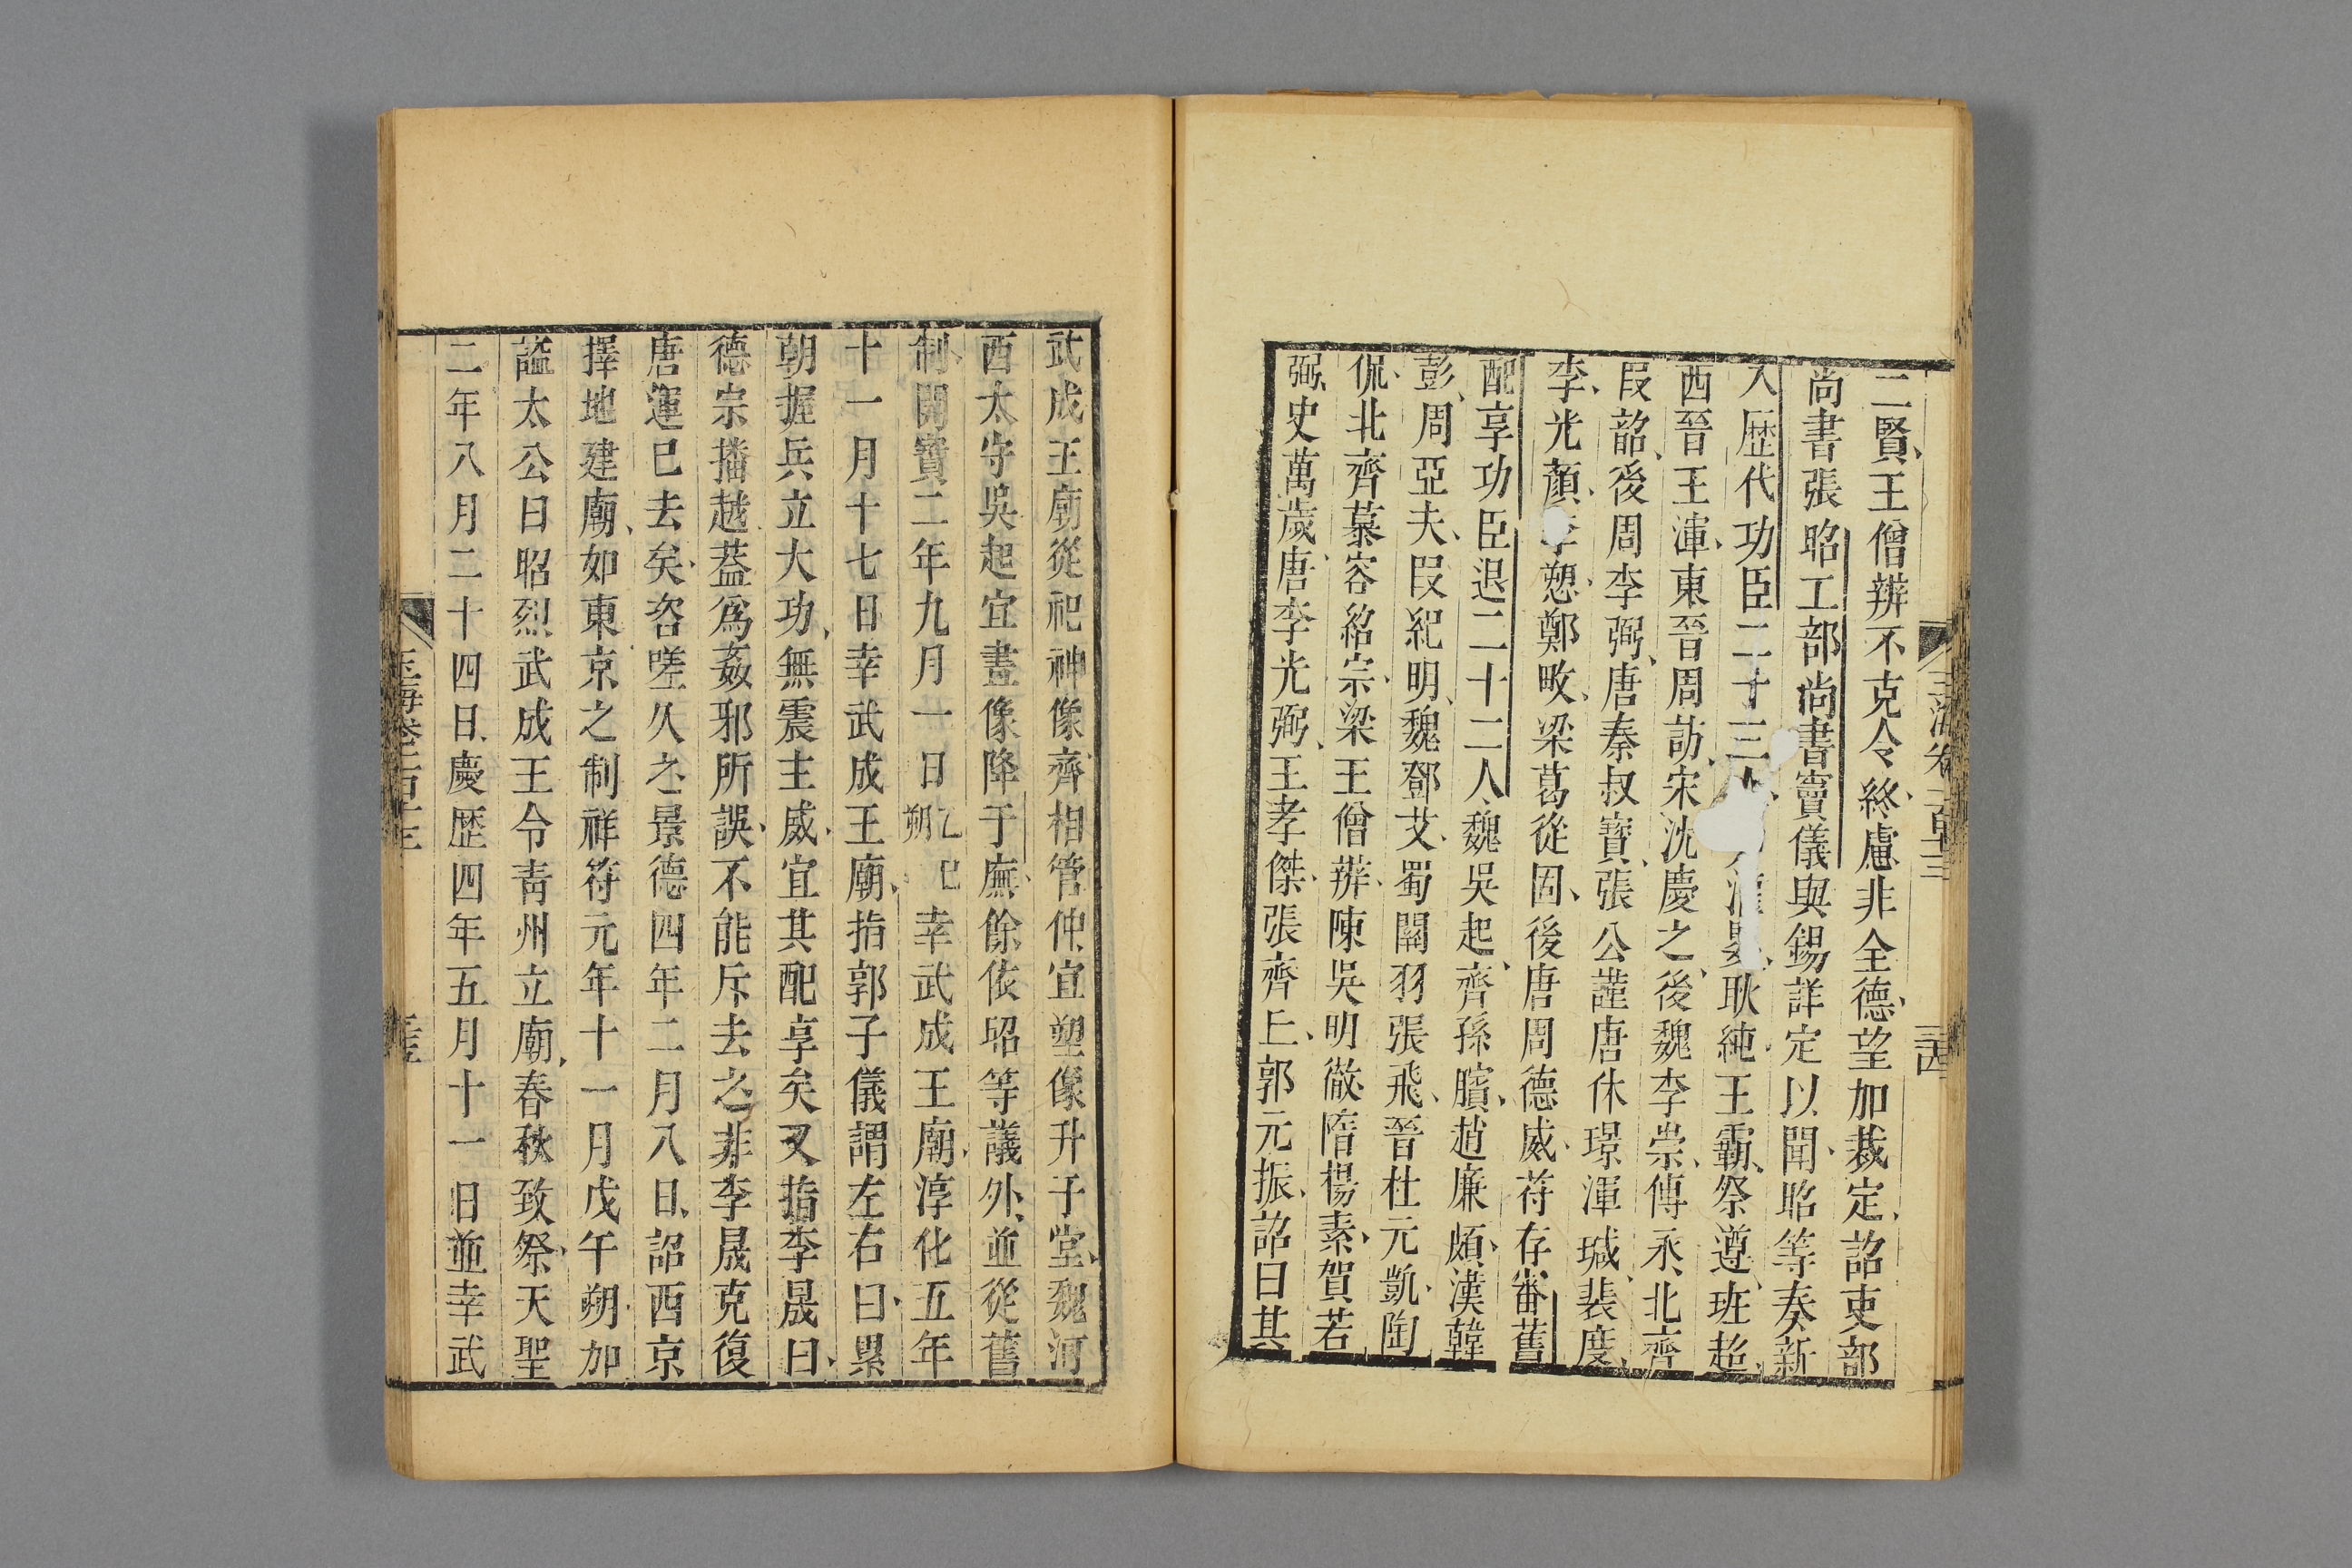 二賢王僧辨不克令終慮非全德望加裁定詔吏部
尚書張昭工部尚書竇儀與錫詳定以聞昭等奏新
入歷代功臣二十三灌嬰耿純王霸祭遵班超
西晉王渾東晉周訪宋沈慶之後魏李崇傅永北齊
段韶後周李弼唐秦叔寶張公謹唐休璟渾瑊裴度
李光顏李愬鄭畋梁葛從周後唐周德威符存審舊
配享功臣退二十二人魏吳起齊孫臏趙廉頗漢韓
彭周亞夫段紀明魏鄧艾蜀關羽張飛晉杜元凱陶
侃北齊慕容紹宗梁王僧辨陳吳明徹隋楊素賀若
弼史萬歲唐李光弼王孝傑張齊丘郭元振詔曰其
武成王廟從祀神像齊相管仲宜塑像升于堂魏河
西太守吳起宜畫像降于廡餘依昭等議外並從舊
制開寶二年九月一日乙巳朔幸武成王廟淳化五年
十一月十七日幸武成王廟指郭子儀謂左右曰累
朝握兵立大功無震主威宜其配享矣又指李晟曰
德宗播越葢爲姦邪所誤不能斥去之非李晟克復
唐運已去矣咨嗟久之景德四年二月八日詔西京
擇地建廟如東京之制祥符元年十一月戊午朔加
謚太公曰昭烈武成王令靑州立廟春秋致祭天聖
二年八月二十四日慶歷四年五月十一日並幸武